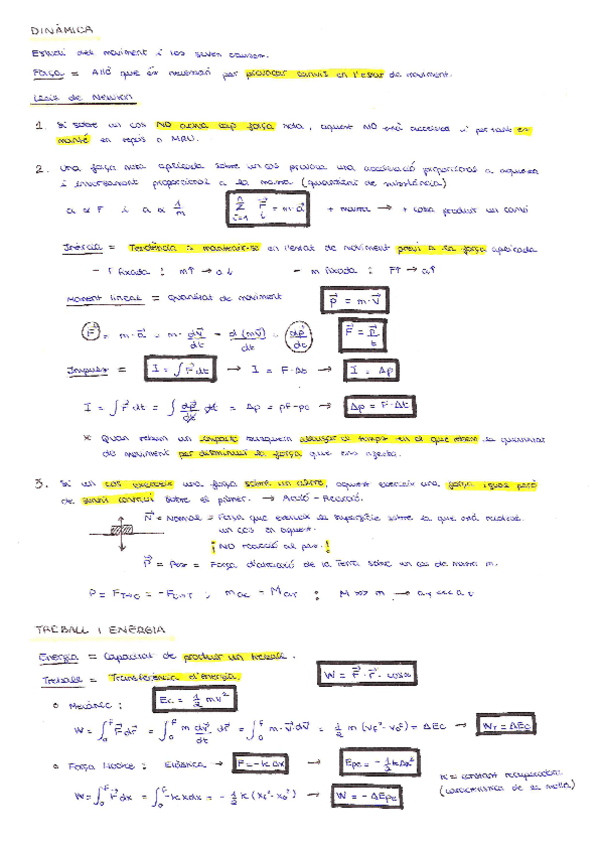 DINÀMICA
Estudi del moviment i les seves causes.
Força = Allò que és necessari per provocar canvis en l'estat de moviment.
Lleis de Newton
1. Si sobre un cos NO actua cap força neta, aquest NO està accelerat i per tant es
manté en repòs o MRU.
2. Una força neta aplicada sobre un cos provoca una acceleració proporcional a aquesta
i inversament proporcional a la massa (quantitat de substància)
a ∝ F i a ∝ 1/m
+ massa → + costa produir un canvi
Inèrcia = Tendència a mantenir-se en l'estat de moviment previ a la força aplicada
- F fixada : m↑ → a↓ - m fixada : F↑ → a↑
Moment lineal = Quantitat de moviment p = m·v
F = m·a = m· dv/dt = d(mv)/dt = dp/dt F = p/t
Impuls = I = ∫Fdt → I = F·Δt → I = Δp
I = ∫Fdt = ∫ dp/dt dt = Δp = pF-po → Δp = F·Δt
* Quan rebem un impacte busquem allargar el temps en el que rebem la quantitat
de moviment per disminuir la força que ens injecta.
3. Si un cos exerceix una força sobre un altre, aquest exerceix una força igual però
de sentit contrari sobre el primer. → Acció - Reacció.
N = Normal = Força que exerceix la superfície sobre la que està recolzat
un cos en aquest.
¡NO reacció al pes!
P = Pes = Força d'atracció de la Terra sobre un cos de massa m.
TREBALL I ENERGIA
Energia = Capacitat de produir un treball.
Treball = Transferència d'energia. W = F · r · cosα
o Mecànic : Ec = 1/2 mv²
→ WT = ΔEc
o Força Hooke : Elàstica → F = -kΔx → Epe = -1/2 kΔx²
K = constant recuperadora
(característica de la molla)
→ W = -ΔEpe